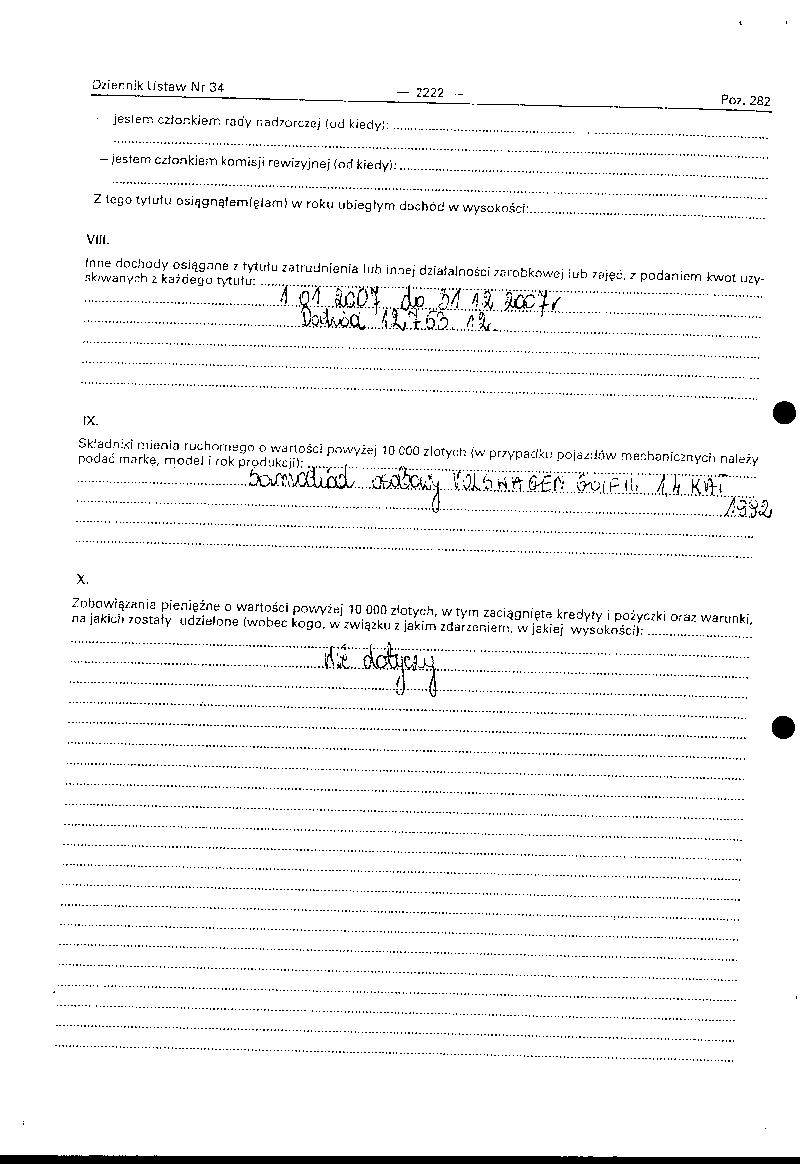 Dziennik Ustaw Nr 34 — 2222 — Poz. 282
- jestem członkiem rady nadzorczej (od kiedy):
– jestem członkiem komisji rewizyjnej (od kiedy):
Z tego tytułu osiągnąłem(ęłam) w roku ubiegłym dochód w wysokości:
VIII.
Inne dochody osiągane z tytułu zatrudnienia lub innej działalności zarobkowej lub zajęć, z podaniem kwot uzy-
skiwanych z każdego tytułu:
1 01 2007 do 31 12 2007r
Dochód 12.753.12.
IX.
Składniki mienia ruchomego o wartości powyżej 10 000 złotych (w przypadku pojazdów mechanicznych należy
podać markę, model i rok produkcji):
Samochód osobowy VOLSWAGEN GOLF III 1,4 KAT
1992
X.
Zobowiązania pieniężne o wartości powyżej 10 000 złotych, w tym zaciągnięte kredyty i pożyczki oraz warunki,
na jakich zostały udzielone (wobec kogo, w związku z jakim zdarzeniem, w jakiej wysokości):
nie dotyczy